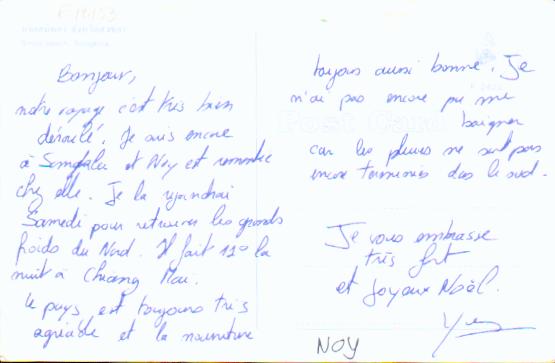 Bonjour,
notre voyage c'est très bien
déroulé. Je suis encore
à Songkla et Noy est remontée
chez elle. Je la rejoindrai
Samedi pour retrouver les grands
froids du Nord. Il fait 11° la
nuit à Chiang Mai.
Le pays est toujours très
agréable et la nourriture
toujours aussi bonne. Je
n'ai pas encore pu me
baigner
car les pluies ne sont pas
encore terminées dans le sud.
Je vous embrasse
très fort
et Joyeux Noël.
Yves
NOY
Post Card